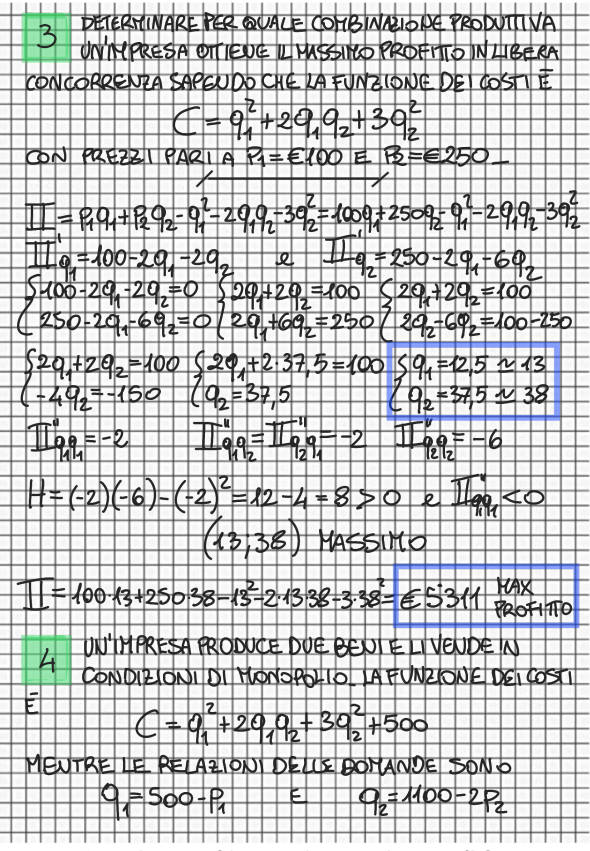 3 DETERMINARE PER QUALE COMBINAZIONE PRODUTTIVA
UN'IMPRESA OTTIENE IL MASSIMO PROFITTO IN LIBERA
CONCORRENZA SAPENDO CHE LA FUNZIONE DEI COSTI È
C = q₁² + 2q₁q₂ + 3q₂²
CON PREZZI PARI A P₁ = €100 E P₂ = €250_
Π = P₁q₁ + P₂q₂ - q₁² - 2q₁q₂ - 3q₂² = 100q₁ + 250q₂ - q₁² - 2q₁q₂ - 3q₂²
Π'q₁ = 100 - 2q₁ - 2q₂ e Π'q₂ = 250 - 2q₁ - 6q₂
{100 - 2q₁ - 2q₂ = 0 {2q₁ + 2q₂ = 100 {2q₁ + 2q₂ = 100
250 - 2q₁ - 6q₂ = 0 2q₁ + 6q₂ = 250 2q₂ - 6q₂ = 100 - 250
{2q₁ + 2q₂ = 100 {2q₁ + 2·37,5 = 100 {q₁ = 12,5 ≃ 13
-4q₂ = -150 q₂ = 37,5 q₂ = 37,5 ≃ 38
Π''q₁q₁ = -2 Π''q₁q₂ = Π''q₂q₁ = -2 Π''q₂q₂ = -6
H = (-2)(-6) - (-2)² = 12 - 4 = 8 > 0 e Π''q₁q₁ < 0
(13; 38) MASSIMO
Π = 100·13 + 250·38 - 13² - 2·13·38 - 3·38² = €5311 MAX PROFITTO
4 UN'IMPRESA PRODUCE DUE BENI E LI VENDE IN
CONDIZIONI DI MONOPOLIO_ LA FUNZIONE DEI COSTI
È
C = q₁² + 2q₁q₂ + 3q₂² + 500
MENTRE LE RELAZIONI DELLE DOMANDE SONO
q₁ = 500 - P₁ E q₂ = 1100 - 2P₂